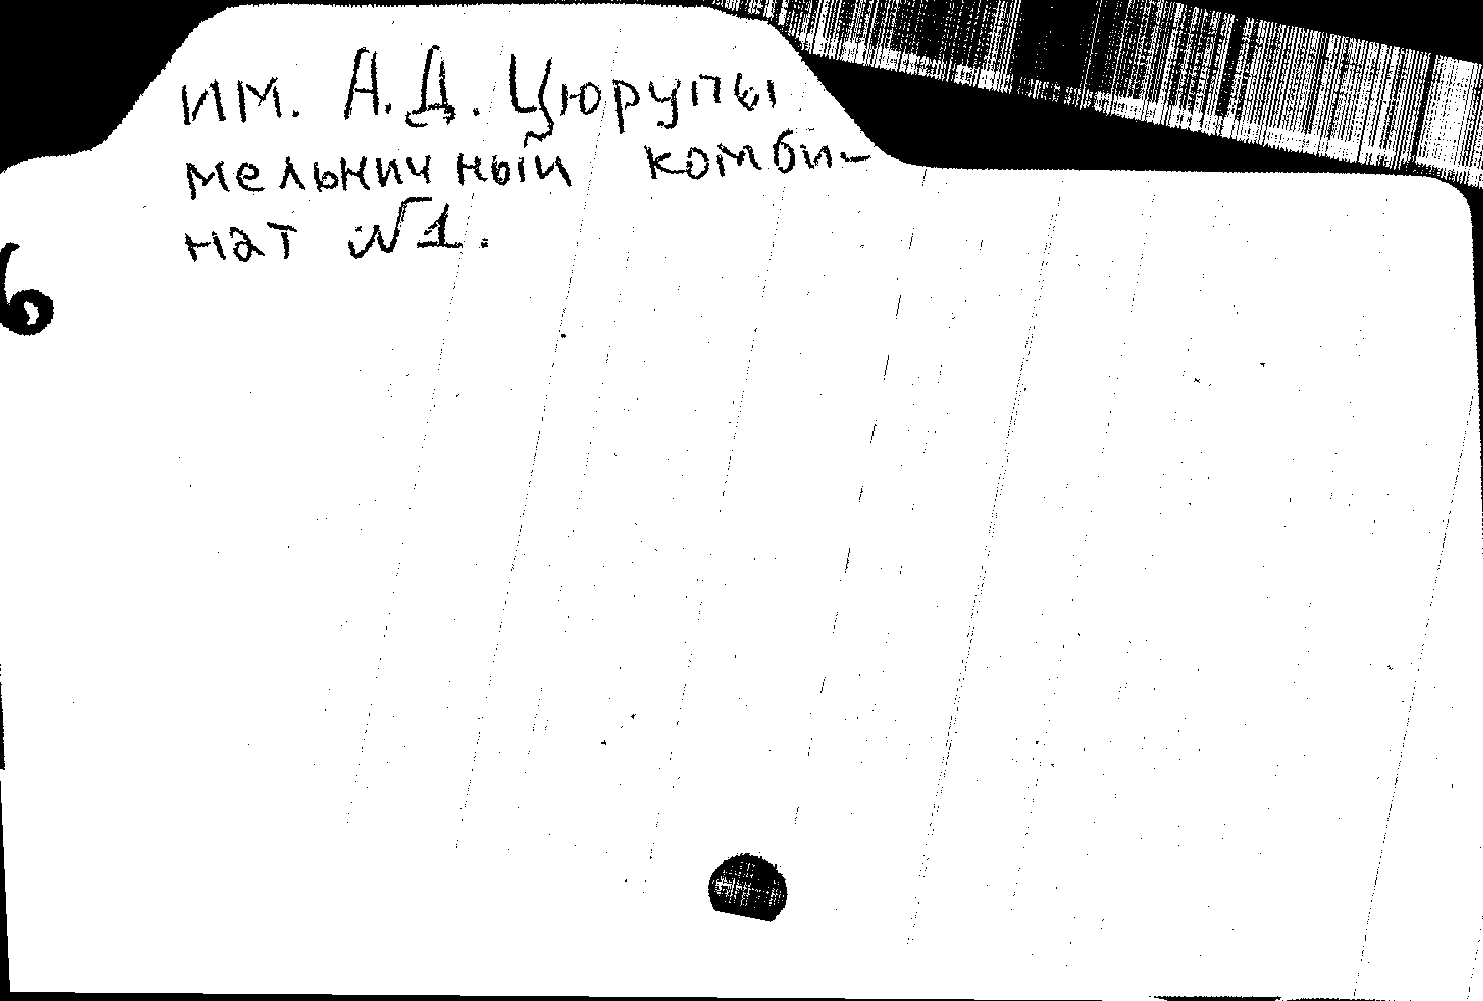 им. А.Д. Цюрупы
мельничный комби-
нат №1.
6